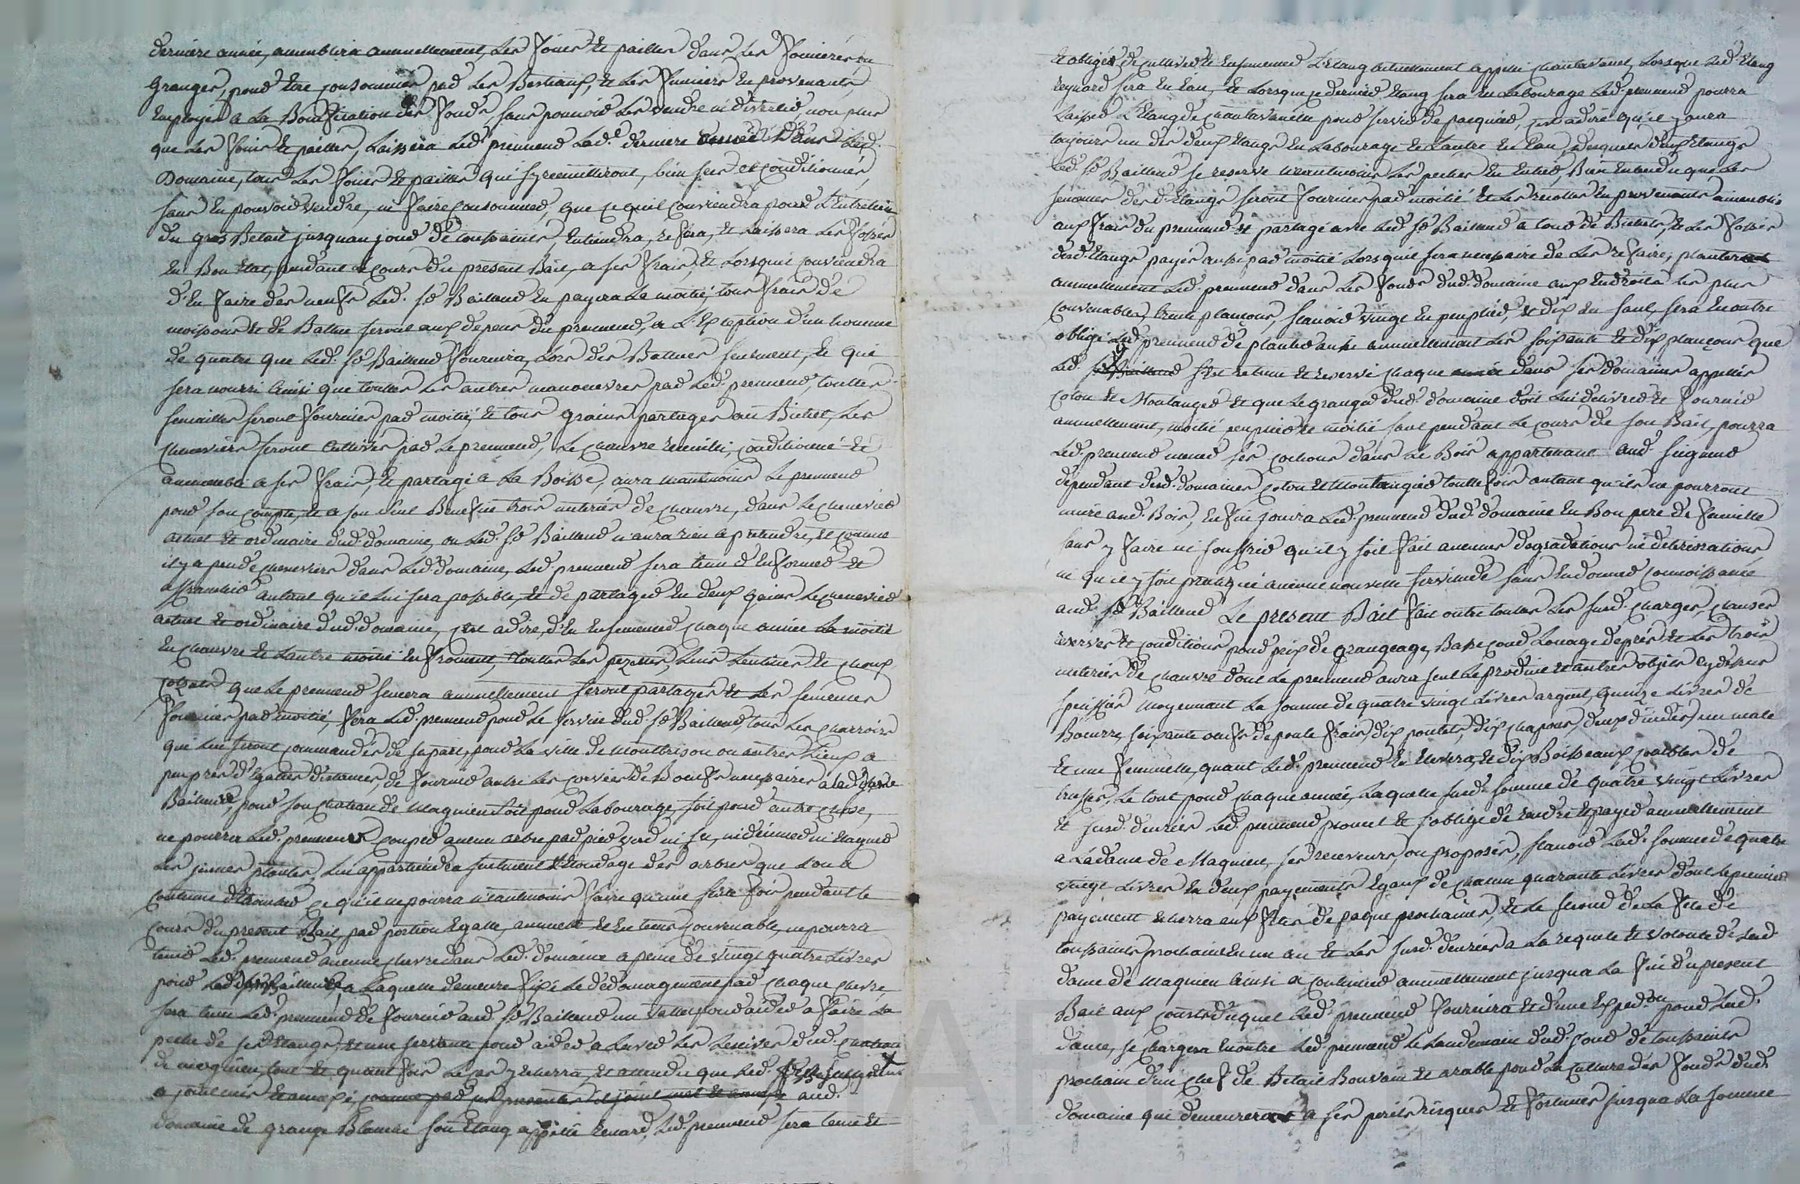 derniere année, amenblira annuellement, les foins et pailles dans les fenieres ou
granges, pour etre consommés par les Bestiaux, et les fumiers en provenants
Employés a la Bonification des fonds sans pouvoir les vendre ni divertir, non plus
que les foins et pailles, laissera led. prenneur lad. derniere année dans led.
Domaine, tous les foins et pailles qui s'y recuilliront, bien secs et conditionnés,
sans en pouvoir vendre, ni faire consommer, que ce qu'il conviendra pour l'Entretien
du gros Betail jusquau jour de toussaints, Entiendra, refera, et laissera les fosses
en Bon Etat, pendant le cours du present Bail, a ses frais, et lorsqu'il conviendra
d'En faire des neufs led. sr Bailleur en payera la moitié, tous frais de
moissons et de Battre seront aux depens du prenneur, a l'Exception d'un homme
de quatre que led. sr Bailleur fournira, lors des Battues seulement, et qui
sera nourri ainsi que touttes les autres manoeuvres par led. prenneur, touttes
semailles seront fournies par moitié, et tous grains partagés au Bichet, les
cheneviers seront cultivés par le prenneur, le chanvre recuilli, conditionné et
a ses frais, et partagé a la Boisse, aura neantmoins le prenneur
pour son compte, et a son seul Benefice trois meterées de chanvre, dans le chenevier
actuel et ordinaire dud. domaine, ou led. sr Bailleur n'aura rien a pretendre, et comme
il y a peu de chenevier dans led. domaine, led. prenneur sera tenu d'En former et
autant qu'il lui sera possible, et de partager en deux le chenevier
actuel et ordinaire dud. domaine, c'est a dire, d'En ensemencer chaque année la moitié
en chanvre et l'autre moitié en froment, touttes les pezettes, lentilles et choux
que le prenneur semera annuellement seront partagés et les semences
fournies par moitié, fera led. prenneur pour le service dud. sr Bailleur, tous les charrois
que lui seront commandés de sa part, pour la ville de Montbrison ou autres lieux a
peu pres d'Egalles distances, de fournir autre les corvées de Boeufs necessaires a lad. dame
Bailleure, pour son chateau de Magnieu soit pour labourage, soit pour autre chose,
ne pourra led. prenneur couper aucun arbre par pied verd ni sec, ni ni
les jeunes plantes, lui appartiendra seulement l'Etondage des arbres que l'on a
coutume d'Etonder ce qu'il ne pourra neantmoins faire qu'une seule fois pendant le
cours du present Bail, par portion Egalle, annuelle et en tems convenable, ne pourra
tenir led. prenneur aucune chevre dans led. domaine a peine de vingt quatre livres
pour a laquelle demeure fixé le dedomagement par chaque chevre,
sera tenu led. prenneur de fournir aud. sr Bailleur un valet pour aider a faire la
peche de ses Etangs, et une servante pour aider a laver les lessives dud. chateau
de magnieu, tout et quant fois le cas y Echerra, et attendu que led.
a joint aud.
domaine de grange Blanche son Etang appellé Renard, led. prenneur sera tenu et
et obligé de cultiver et Ensemencer l'Etang actuellement appellé chantavanel, lorsque led. Etang
renard sera en Eau, et lorsque ce dernier Etang sera en labourage led. prenneur pourra
laisser l'Etang de chantavanelle pour servir de pacquier, c'est adire qu'il jouira
toujours un des deux Etangs en labourage et l'autre en Eau, desquels deux Etangs
led. sr Bailleur se reserve neantmoins les peches en Entier Bien Entendu que les
semences desd. Etangs seront fournies par moitié et les recoltes en provenants amenblés
aux frais du prenneur et partagé avec led. sr Bailleur a tour de Bichets, et les fosses
desd. Etangs payés aussi par moitié lorsqu'il sera necessaire de les refaire, plantera
annuellement led. prenneur dans les fonds dud. domaine aux Endroits les plus
convenables trente plançons, scavoir vingt en peuplier et dix en saul, sera en outre
obligé led. prenneur de planter aussi annuellement les soixante et dix plançons que
led. s'est retenu et reservé chaque dans ses domaines appellés
coton et Montanges et que le granger dud. domaine doit lui delivrer et fournir
annuellement, moitié peuplier et moitié saul pendant le cours de son Bail, pourra
led. prenneur mener ses cochons dans le Bois appartenant aud. seigneur
dependant desd. domaines coton et Montanges touttefois autant qu'ils ne pourront
nuire aud. Bois, en fin jouira led. prenneur dud. domaine en Bon pere de famille
sans y faire ni souffrir qu'il y soit fait aucunes degradations ni deteriorations
ni qu'il y soit pratiqué aucune nouvelle servitude sans en donner connoissance
aud. sr Bailleur Le present Bail fait outre touttes les susd. charges, clauses
reserves et conditions pour prix de grangeage, Basse cour louage de prés et les trois
meterées de chanvre dont le prenneur aura seul le produit et autres objets cy dessus
moyennant la somme de quatre vingt livres argent, quinze livres de
Beurre, soixante oeufs de poule frais, dix poulets, dix chapons, deux dindes, un male
et une feminelle, quant led. prenneur en Elevera, et dix Boisseaux combles de
truffes, le tout pour chaque année, laquelle susd. somme de quatre vingt livres
et susd. denrées led. prenneur promet et s'oblige de rendre et payer annuellement
a la dame de Magnieu, ses receveurs, ou preposés, scavoir lad. somme de quatre
vingt livres en deux payements Egaux de chacun quarante livres dont le premier
payement Echerra aux fetes de paque prochaines, et le second de la fete de
toussaints prochaine en un an et les susd. denrées a la requete et volonté de lad.
dame de Magnieu ainsi a continuer annuellement jusqua la fin du present
Bail aux couts duquel led. prenneur fournira et d'une Exped.on pour lad.
dame, se chargera en outre led. prenneur le landemain dud. jour de toussaints
prochain d'un chef de Betail Bouvain et arable pour la culture des fonds dud.
domaine qui demeurera a ses perils risques et fortunes jusqua la somme